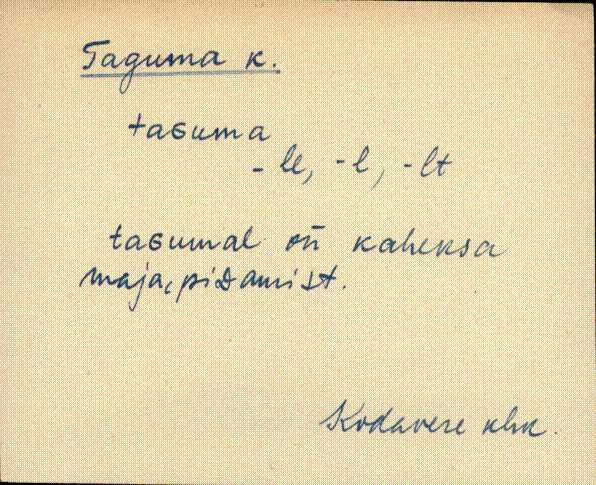 Taguma k.
taɢuma
- le, -l, -lt
taɢumal on̄ kaheksa
maja‿piᴅamist.
Kodavere khk.